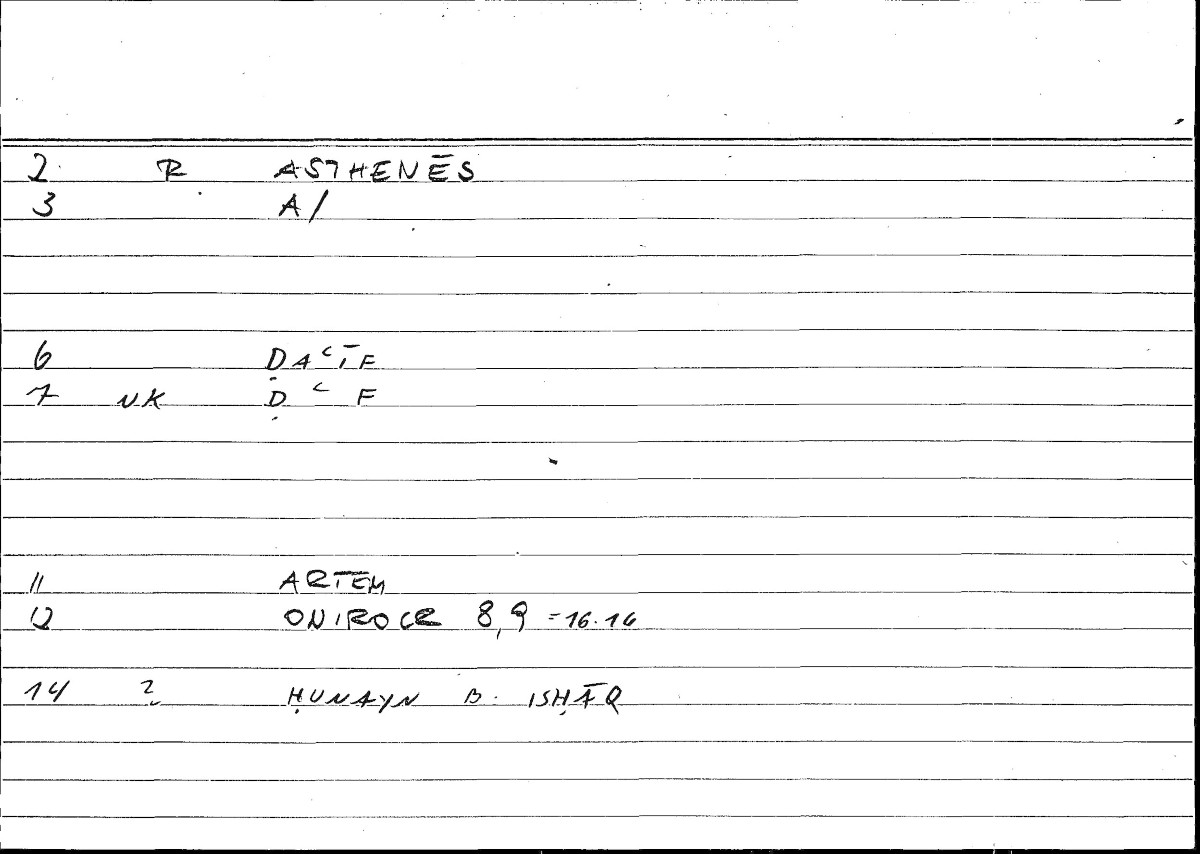 2 R ASTHENĒS
3 A/
6 ḌAʿĪF
7 NK ḌʿF
11 ARTEM
12 ONIROCR 8,9 =16.16
14 2 ḤUNAYN B. ISḤĀQ